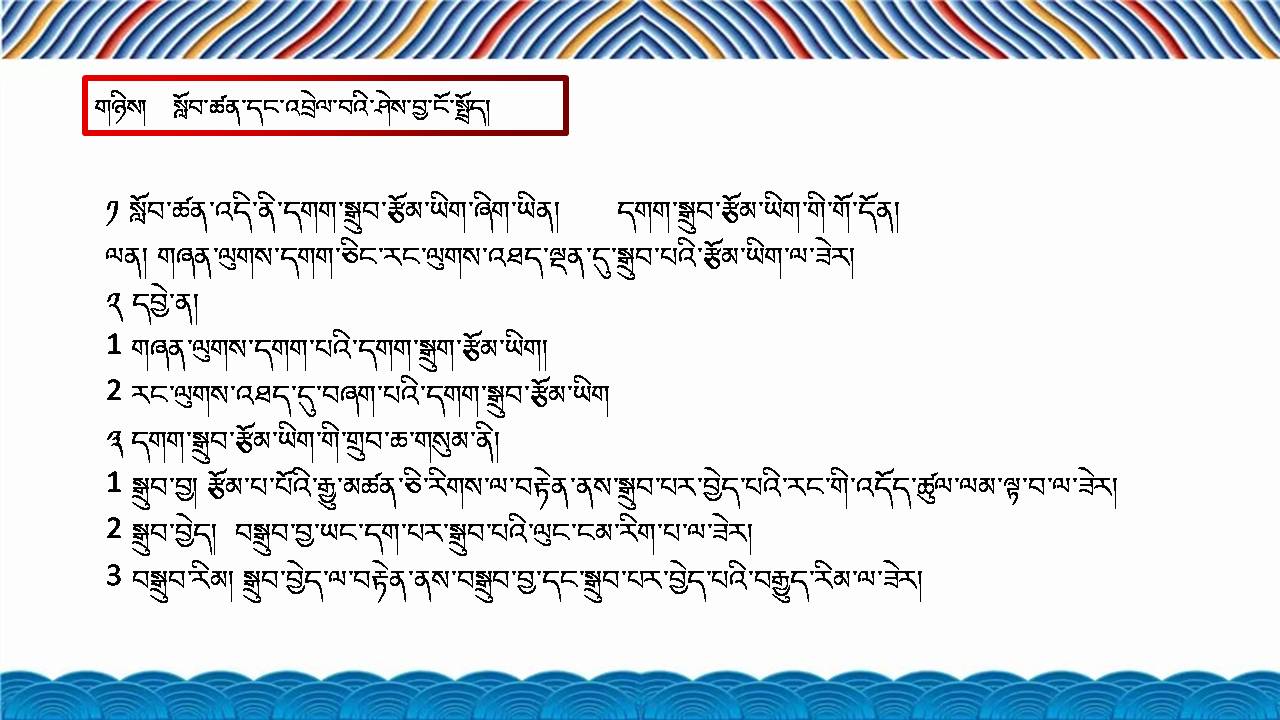 གཉིས།   སློབ་ཚན་དང་འབྲེལ་བའི་ཤེས་བྱ་ངོ་སྤྲོད།
༡ སློབ་ཚན་འདི་ནི་དགག་སྒྲུབ་རྩོམ་ཡིག་ཞིག་ཡིན།      དགག་སྒྲུབ་རྩོམ་ཡིག་གི་གོ་དོན།
ལན། གཞན་ལུགས་དགག་ཅིང་རང་ལུགས་འཐད་ལྡན་དུ་སྒྲུབ་པའི་རྩོམ་ཡིག་ལ་ཟེར།
༢ དབྱེ་ན།
1 གཞན་ལུགས་དགག་པའི་དགག་སྒྲུག་རྩོམ་ཡིག།
2 རང་ལུགས་འཐད་དུ་བཞག་པའི་དགག་སྒྲུབ་རྩོམ་ཡིག
༣ དགག་སྒྲུབ་རྩོམ་ཡིག་གི་གྲུབ་ཆ་གསུམ་ནི།
1 སྒྲུབ་བྱ། རྩོམ་པ་པོའི་རྒྱུ་མཚན་ཅི་རིགས་ལ་བརྟེན་ནས་སྒྲུབ་པར་བྱེད་པའི་རང་གི་འདོད་ཚུལ་ལམ་ལྟ་བ་ལ་ཟེར།
2 སྒྲུབ་བྱེད།  བསྒྲུབ་བྱ་ཡང་དག་པར་སྒྲུབ་པའི་ལུང་ངམ་རིག་པ་ལ་ཟེར།
3 བསྒྲུབ་རིམ། སྒྲུབ་བྱེད་ལ་བརྟེན་ནས་བསྒྲུབ་བྱ་དང་སྒྲུབ་པར་བྱེད་པའི་བརྒྱུད་རིམ་ལ་ཟེར།